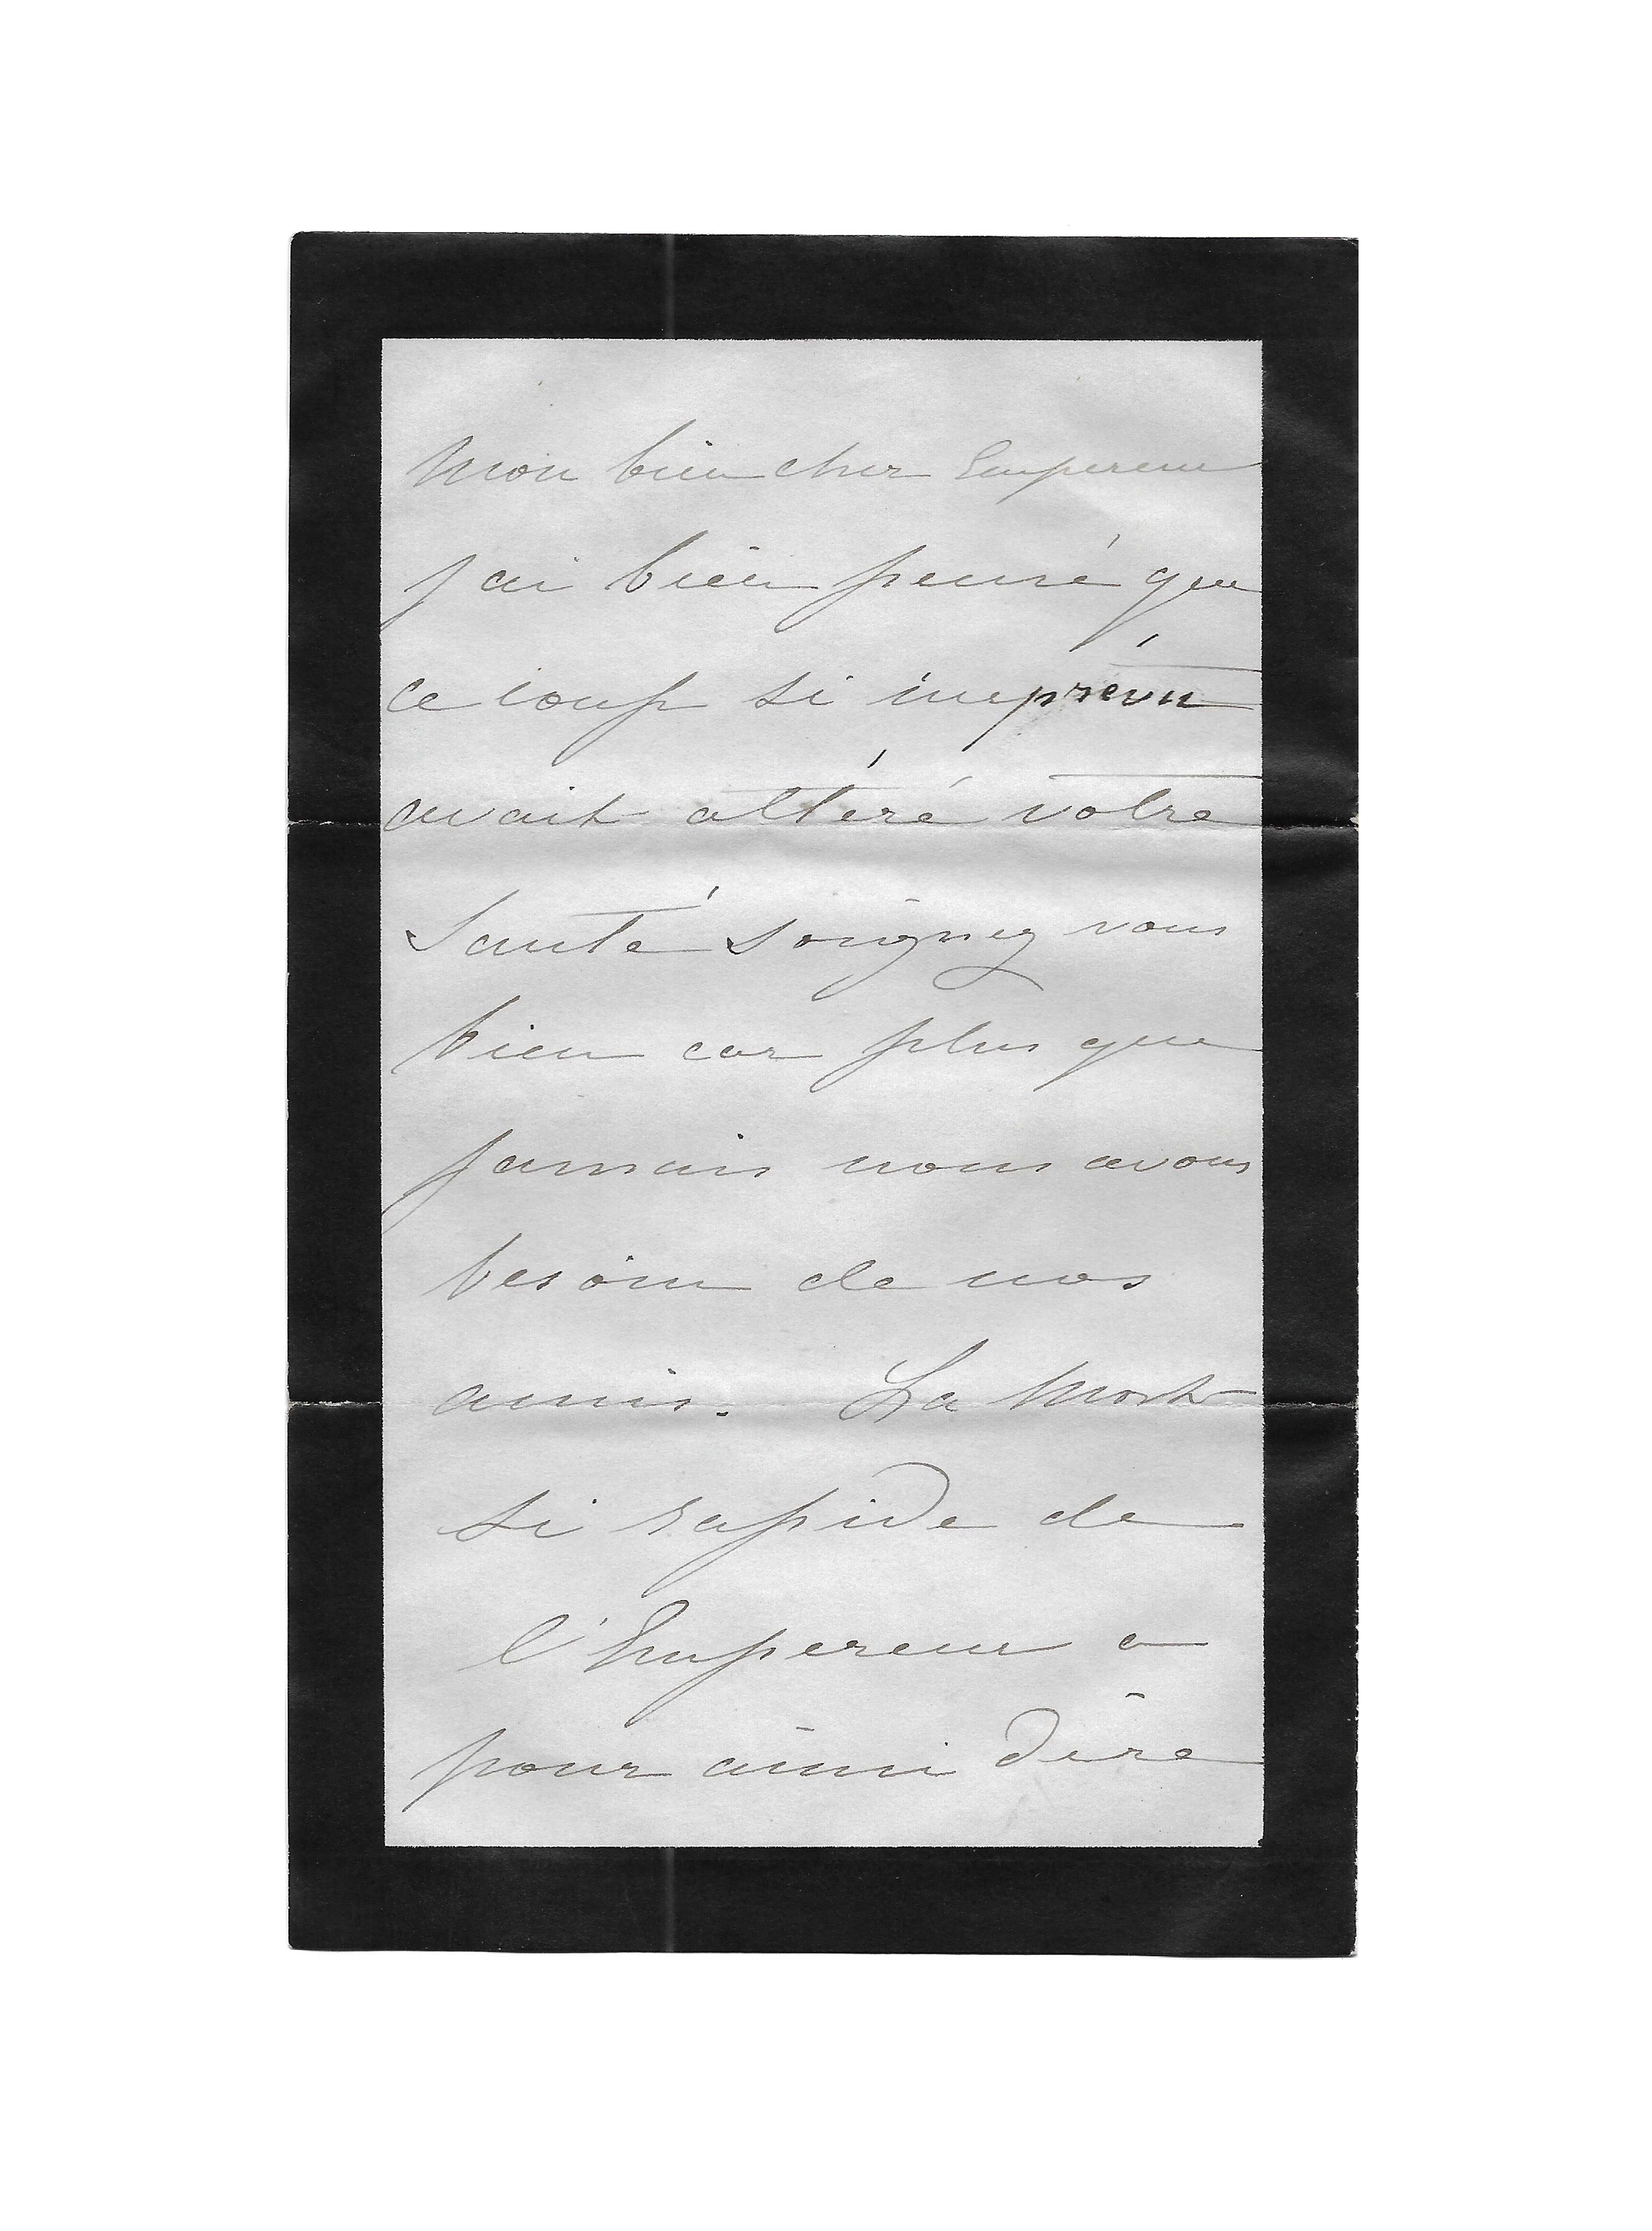 mon bien cher Empereur
j ai bien pensé que
ce coup si imprévu
avait altéré votre
Santé Soignez vous
bien car plus que
jamais nous avons
besoin de nos
amis. La Mort
si rapide de
l'Empereur a
pour ainsi dire